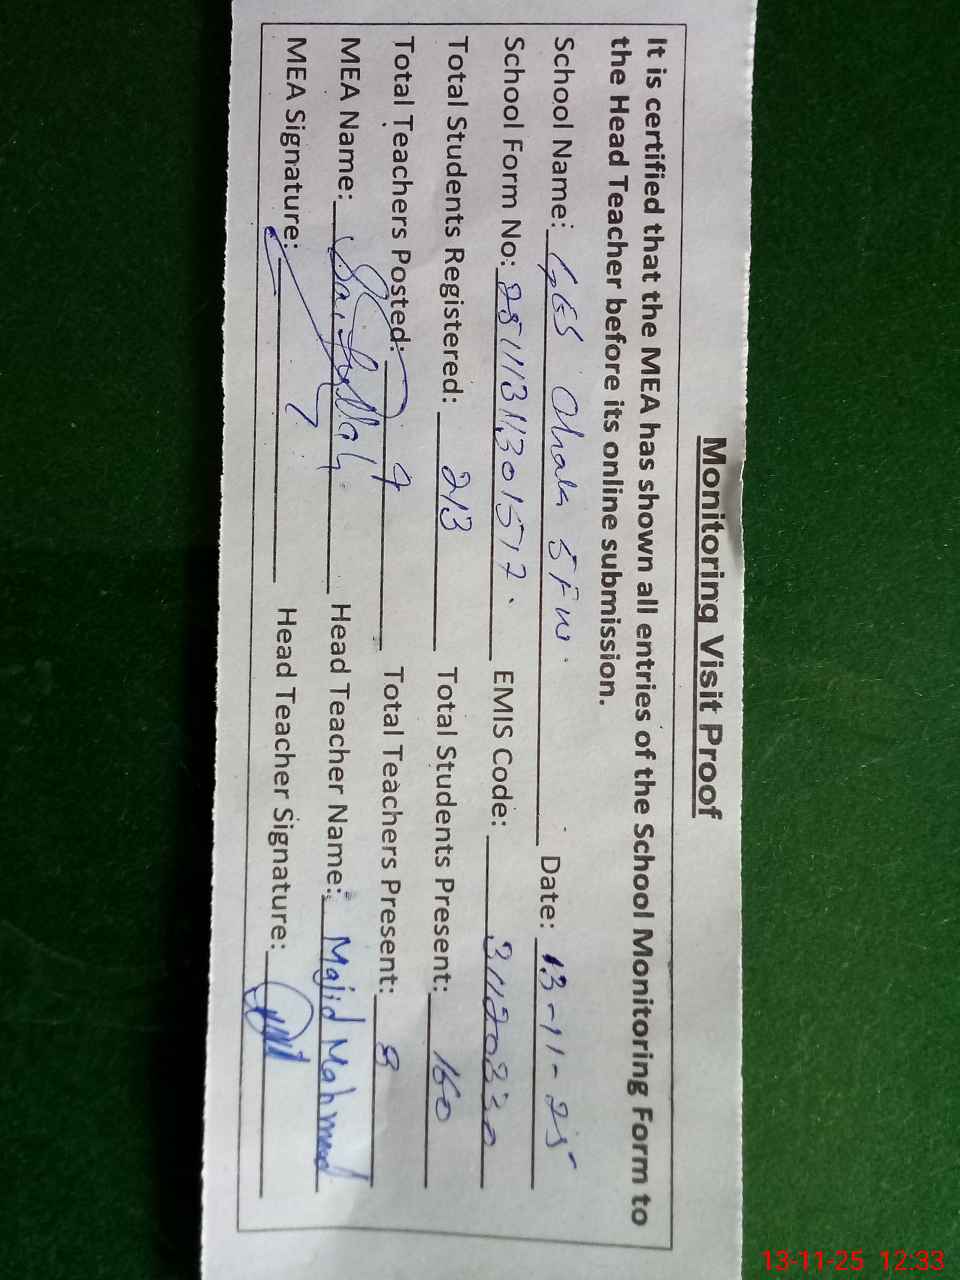 Monitoring Visit Proof
It is certified that the MEA has shown all entries of the School Monitoring Form to
the Head Teacher before its online submission.
School Name: GES Chak 5 FW. Date: 13-11-25
School Form No: EMIS Code:
Total Students Registered: 213 Total Students Present: 160
Total Teachers Posted: 9 Total Teachers Present: 8
MEA Name: Saifullah. Head Teacher Name: Majid Mahmood
MEA Signature: Head Teacher Signature:
13-11-25 12:33